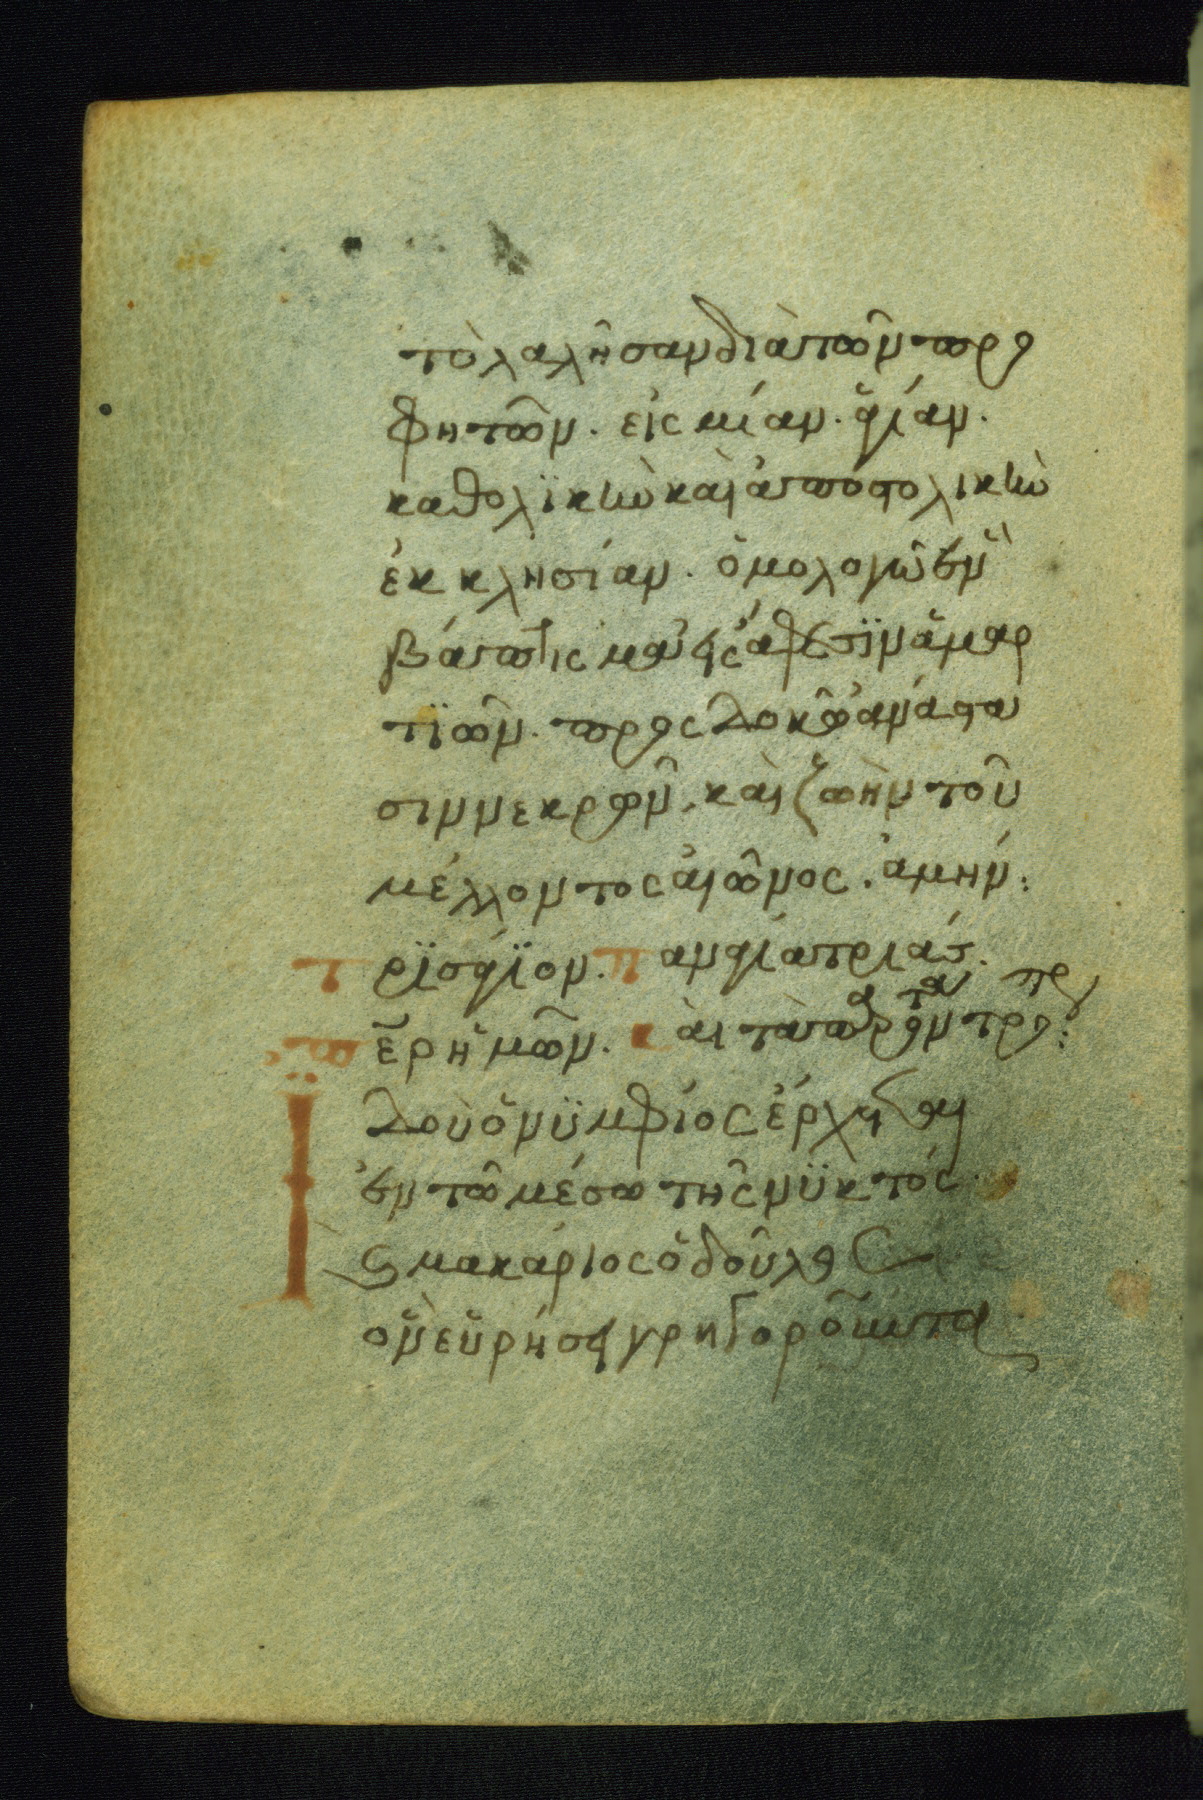 τὸ λαλῆσαν διὰ τῶν προ
φητῶν. εἰς μίαν. ἁγίαν.
καθολϊκὴν καὶ ἀποστολικὴν
ἐκκλησίαν. ὁμολογῶ ἓν
βάπτισμα εἰς ἄφεσϊν ἁμαρ
τϊῶν. προσδοκῶ ἀνάστα
σιν νεκρῶν. καὶ ζωὴν τοῦ
μέλλοντος αἰῶνος. ἀμήν:
Τρϊσάγϊον. Παναγία τριάς.
Περ ἡμῶν. Καὶ τὰ τρο:
Ϊδοὺ ὁ νϋμφίος ἔρχεται
ἐν τῶ μέσω τῆς νϋκτός.
μακάριος ὁ δοῦλος
ὃν εὑρήσει γρηγοροῦντα